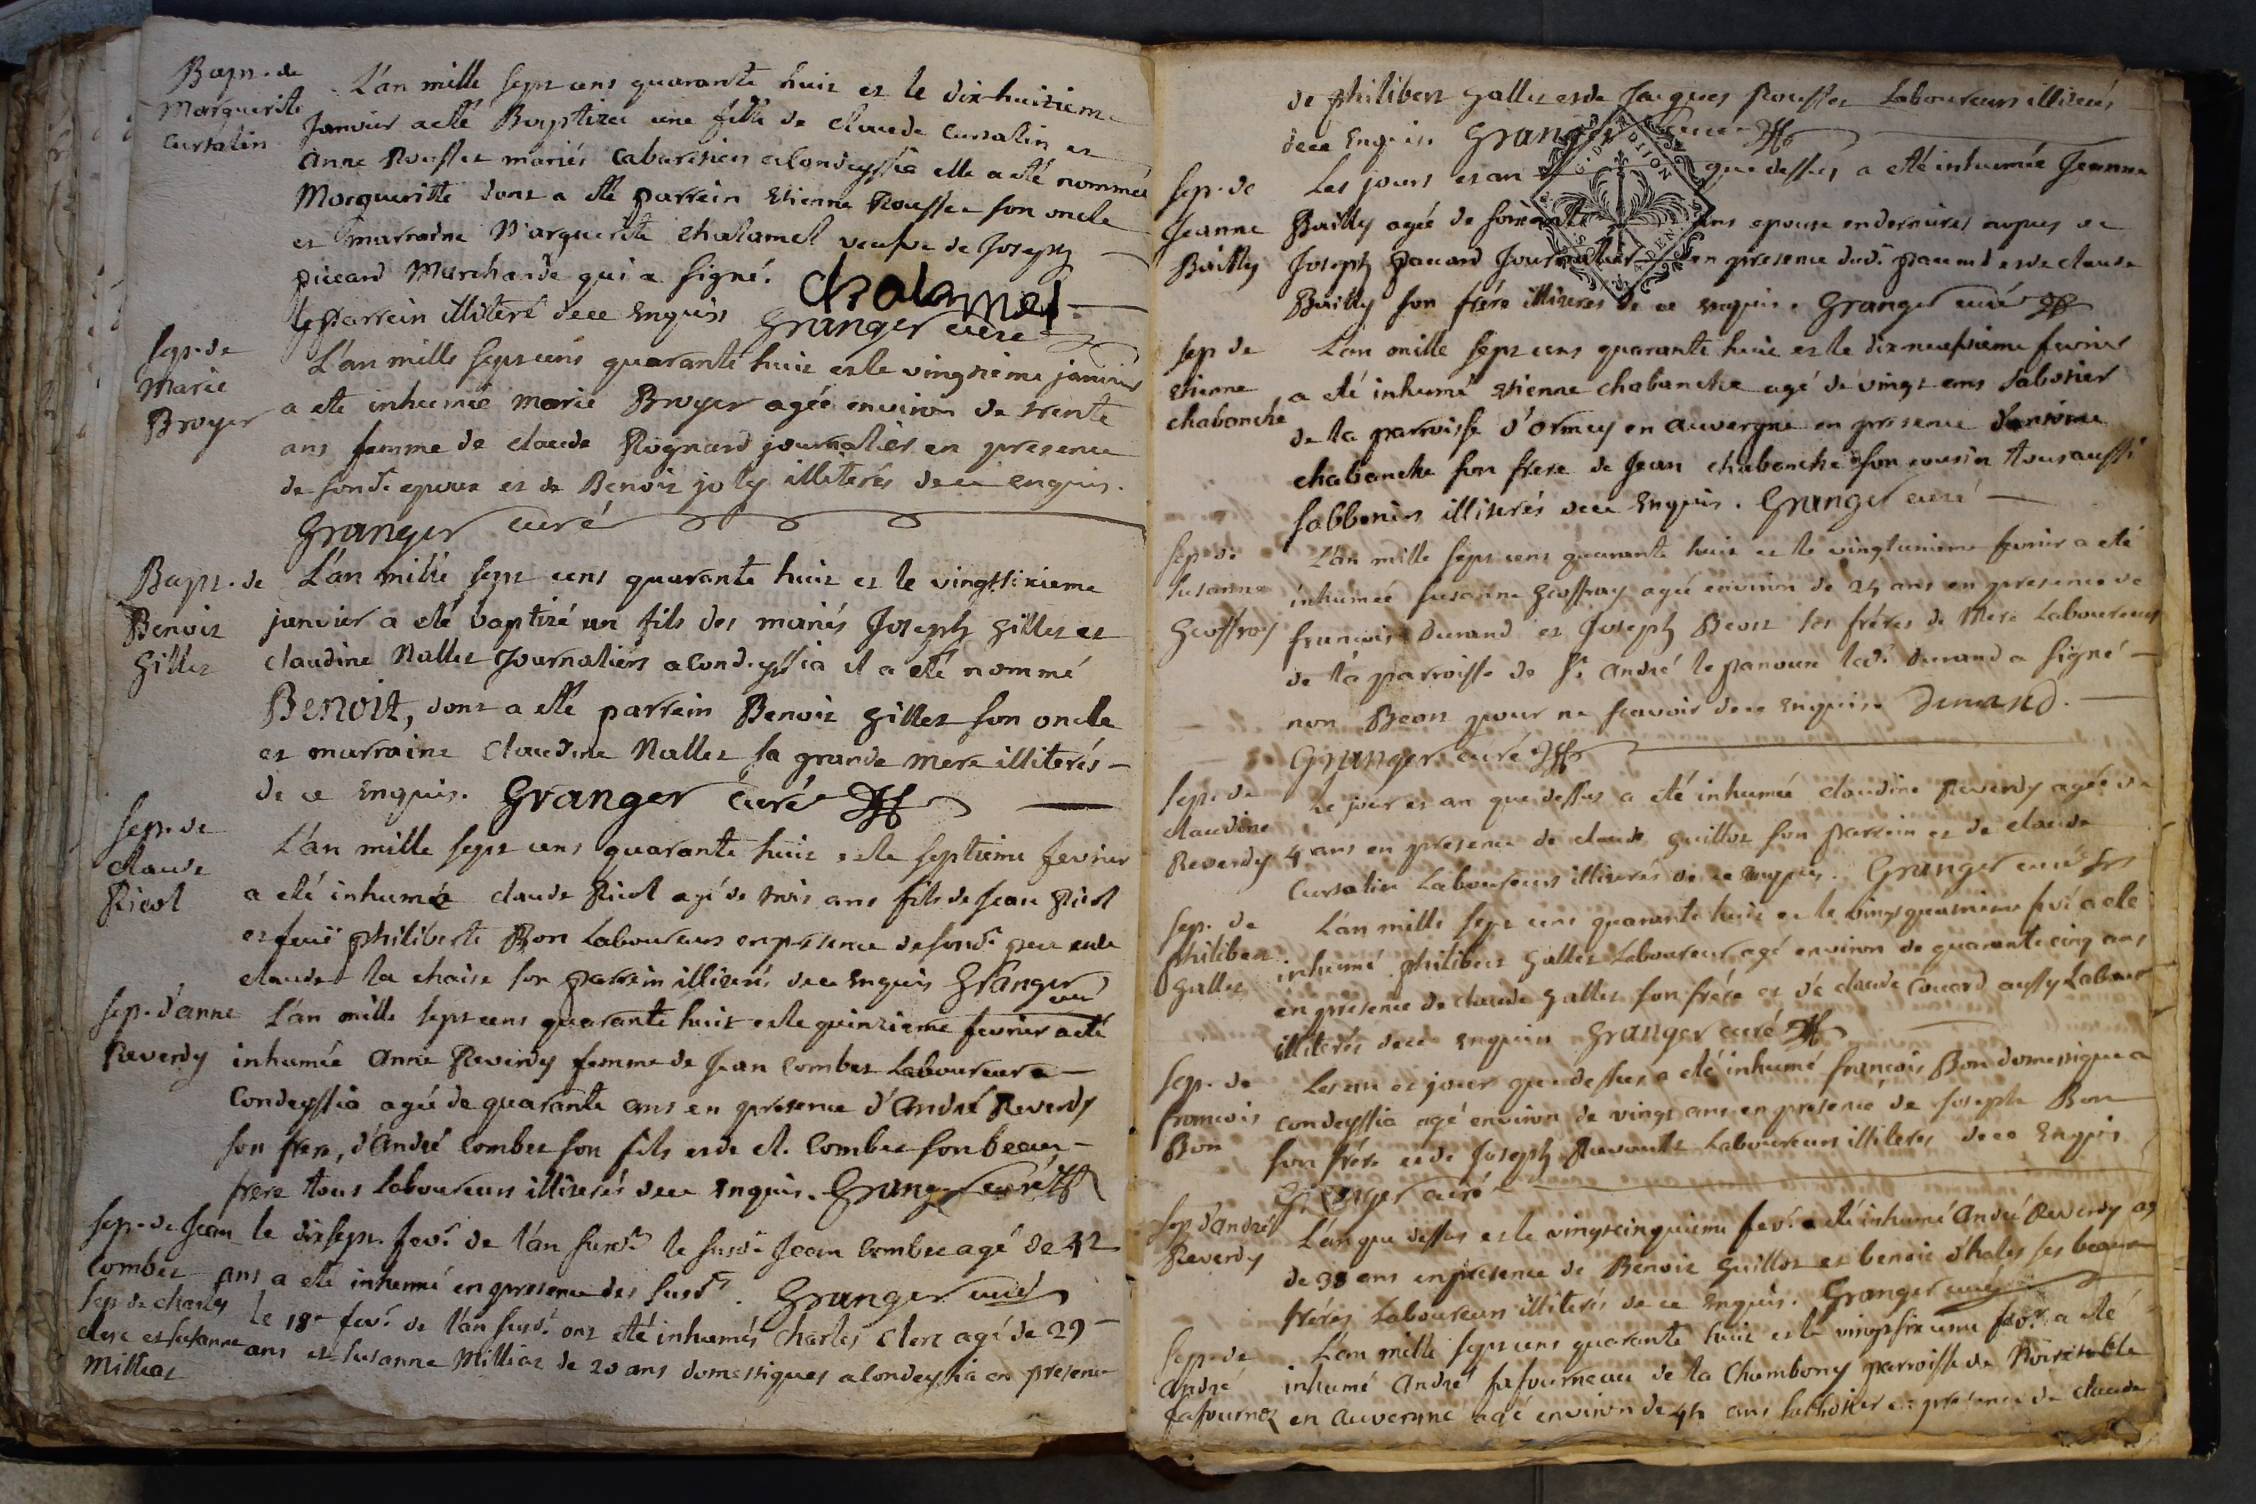 Bapt. de
Marguerite
Cursalin
L'an mille sept cens quarante huit et le dix-huitieme
Janvier a eté Baptizée une fille de Claude Cursalin et
Anne Rousset mariés Cabaretiers a Condeyssia elle a été nommée
Margueritte dont a eté parrein Etienne Rousset son oncle
et marraine Marguerite Chalamel veufve de Joseph
piccard Marchande qui a signé. Chalamel
le parrein illiteré de ce Enquis Granger curé
Sep. de
Marie
Broyer
L'an mille sept cens quarante huit et le vingtieme janvier
a ete inhumée Marie Broyer agée environ de trente
ans femme de Claude Rognard journalier en presence
de sond. epoux et de Benoit joly illiterés de ce enquis.
Granger curé
Bapt. de
Benoit
Gillet
L'an mille sept cens quarante huit et le vingtsixieme
janvier a eté baptizé un fils des mariés Joseph Gillet et
Claudine Nallet Journaliers a Condeyssia il a eté nommé
Benoit, dont a eté parrein Benoit Gillet son oncle
et marraine Claudine Nallet sa grande mere illiterés
de ce Enquis. Granger curé
Sep. de
Claude
Ricol
L'an mille sept cens quarante huit et le septieme fevrier
a eté inhumé Claude Ricol agé de trois ans fils de Jean Ricol
et feüe philiberte Bon Laboureurs en presence de sond. pere et de
Claude la chaise son parrein illiterés de ce Enquis Granger
curé
Sep. d'anne
Reverdy
L'an mille sept cens quarante huit et le quinzieme fevrier a eté
inhumée Anne Reverdy femme de Jean Combet Laboureur a
Condeyssia agée de quarante ans en presence d'André Reverdy
son frere, d'André Combet son fils et de Cl. Combet son beau
frere tous Laboureurs illiterés de ce Enquis. Granger curé
Sep. de Jean
Combet
le dixsept. fev. de l'an susd. le susd. Jean Combet agé de 42
ans a eté inhumé en presence des susd. Granger curé
Sep. de Charles
Clerc et Susanne
Milliat
le 18e fev. de l'an susd. ont eté inhumés Charles Clerc agé de 29
ans et Susanne Milliat de 20 ans domestiques a Condeyssia en presence
de philibert Gallet et de Jacques Rousset Laboureurs illiterés
de ce Enquis. Granger curé
G. D. DIJON
Sep. de
Jeanne
Bailly
Les jours et an que dessus a eté inhumée Jeanne
Bailly agée de soixante ans epouse en dernieres nopces de
Joseph pacard Journalier en presence dud. pacard et de Claude
Bailly son frére illiterés de ce enquis. Granger curé
Sep. de
Etienne
Chabanche
L'an mille sept cens quarante huit et le dixneufvieme fevrier
a eté inhumé Etienne Chabanche agé de vingt ans Sabotier
de la parroisse d'Ormey en Auvergne en presence d'antoine
Chabanche son frere de Jean Chabanche son cousin tous aussi
sabbotiers illiterés de ce Enquis. Granger curé
Sep. de
Susanne
Geoffray
L'an mille sept cens quarante huit et le vingtunieme fevrier a eté
inhumée Susanne Geoffray agée environ de 25 ans en presence de
francois Durand et Joseph Beost ses fréres de Mere Laboureurs
de la parroisse de St. André le panoux led. Durand a signé
non Beost pour ne scavoir de ce enquis. Durand.
Granger curé
Sep. de
Claudine
Reverdy
Le jour et an que dessus a eté inhumée Claudine Reverdy agée de
4 ans en presence de Claude Guillot son parrein et de Claude
Cursalin Laboureurs illiterés de ce enquis. Granger curé
Sep. de
philibert
Gallet
L'an mille sept cens quarante huit et le vingtquatrieme fevr. a eté
inhumé philibert Gallet Laboureur agé environ de quarante cinq ans
en presence de Claude Gallet son frére et de Claude Couard aussy Labour
illiterés de ce Enquis Granger curé
Sep. de
francois
Bon
Les an et jour que dessus a eté inhumé francois Bon domestique a
Condeyssia agé environ de vingt ans en presence de Joseph Bon
son frére et de Joseph Laboureurs illiterés de ce Enquis
Granger curé
Sep. d'andré
Reverdy
L'an que dessus et le vingtcinquieme fev. a eté inhumé André Reverdy ag
de 38 ans en presence de Benoit Guillot et benoit ses beaux
fréres Laboureurs illiterés de ce Enquis. Granger curé
Sep. de
André
Lafournez
L'an mille sept cens quarante huit et le vingtsixieme fev. a eté
inhumé André Lafourneau de la Chambony parroisse de Noiretable
en Auvergne agé environ de 45 ans sabbotier en presence de Claude